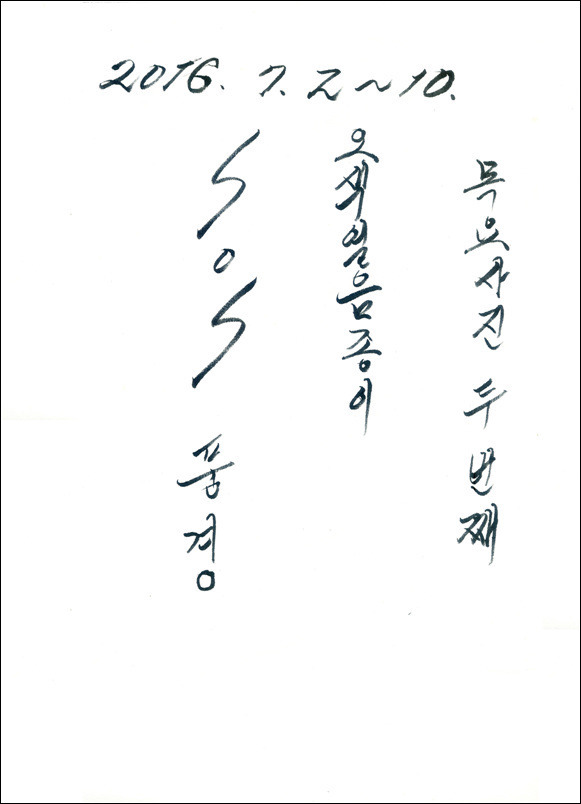 2016. 7. 2~10.
목요사진 두번째
오색일음종이
SOS 풍경